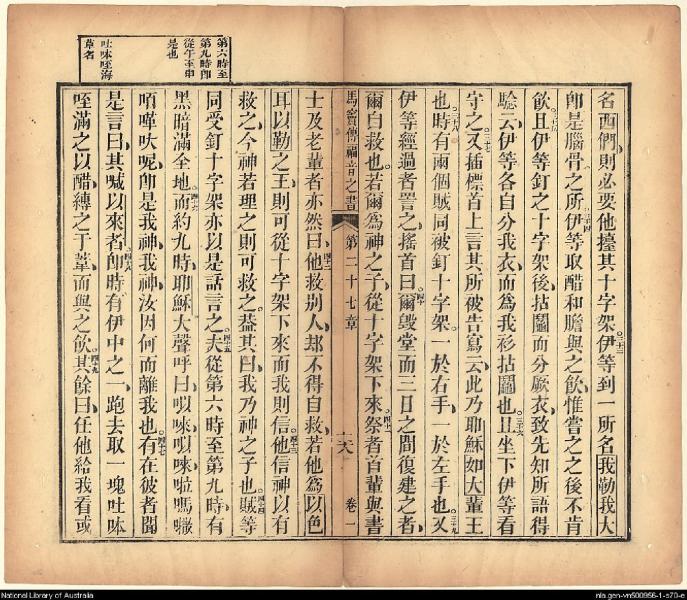 第六時至
第九時卽
從午至申
是也
吐呠咥海
草名
名西們則必要他擡其十字架伊等到一所名我勒我大
卽是腦骨之所伊等取醋和膽與之飲惟嘗之之後不肯
飲且伊等釘之十字架後拈鬮而分厥衣致先知所語得
騐云伊等各自分我衣而爲我衫拈鬮也且坐下伊等看
守之又插標首上言其所被告寫云此乃耶穌如大輩王
也時有兩個賊同被釘十字架一於右手一於左手也又
伊等經過者詈之搖首曰爾毀堂而三日之間復建之者
爾自救也若爾爲神之子從十字架下來祭者首輩與書
馬竇傳福音之書 第二十七章 卷一
士及老輩者亦然曰他救別人却不得自救若他爲以色
耳以勒之王則可從十字架下來而我則信他信神以有
救之今神若理之則可救之葢其曰我乃神之子也賊等
同受釘十字架亦以是話言之夫從第六時至第九時有
黑暗滿全地而約九時耶穌大聲呼曰以唻以唻啦嗎
唭嘩呔呢卽是我神我神汝因何而離我也有在彼者聞
是言曰其喊以來者卽時有伊中之一跑去取一塊吐呠
咥滿之以醋縛之于葦而與之飲其餘曰任他給我看或
National Library of Australia
nla.gen-vn500956-1-s70-e